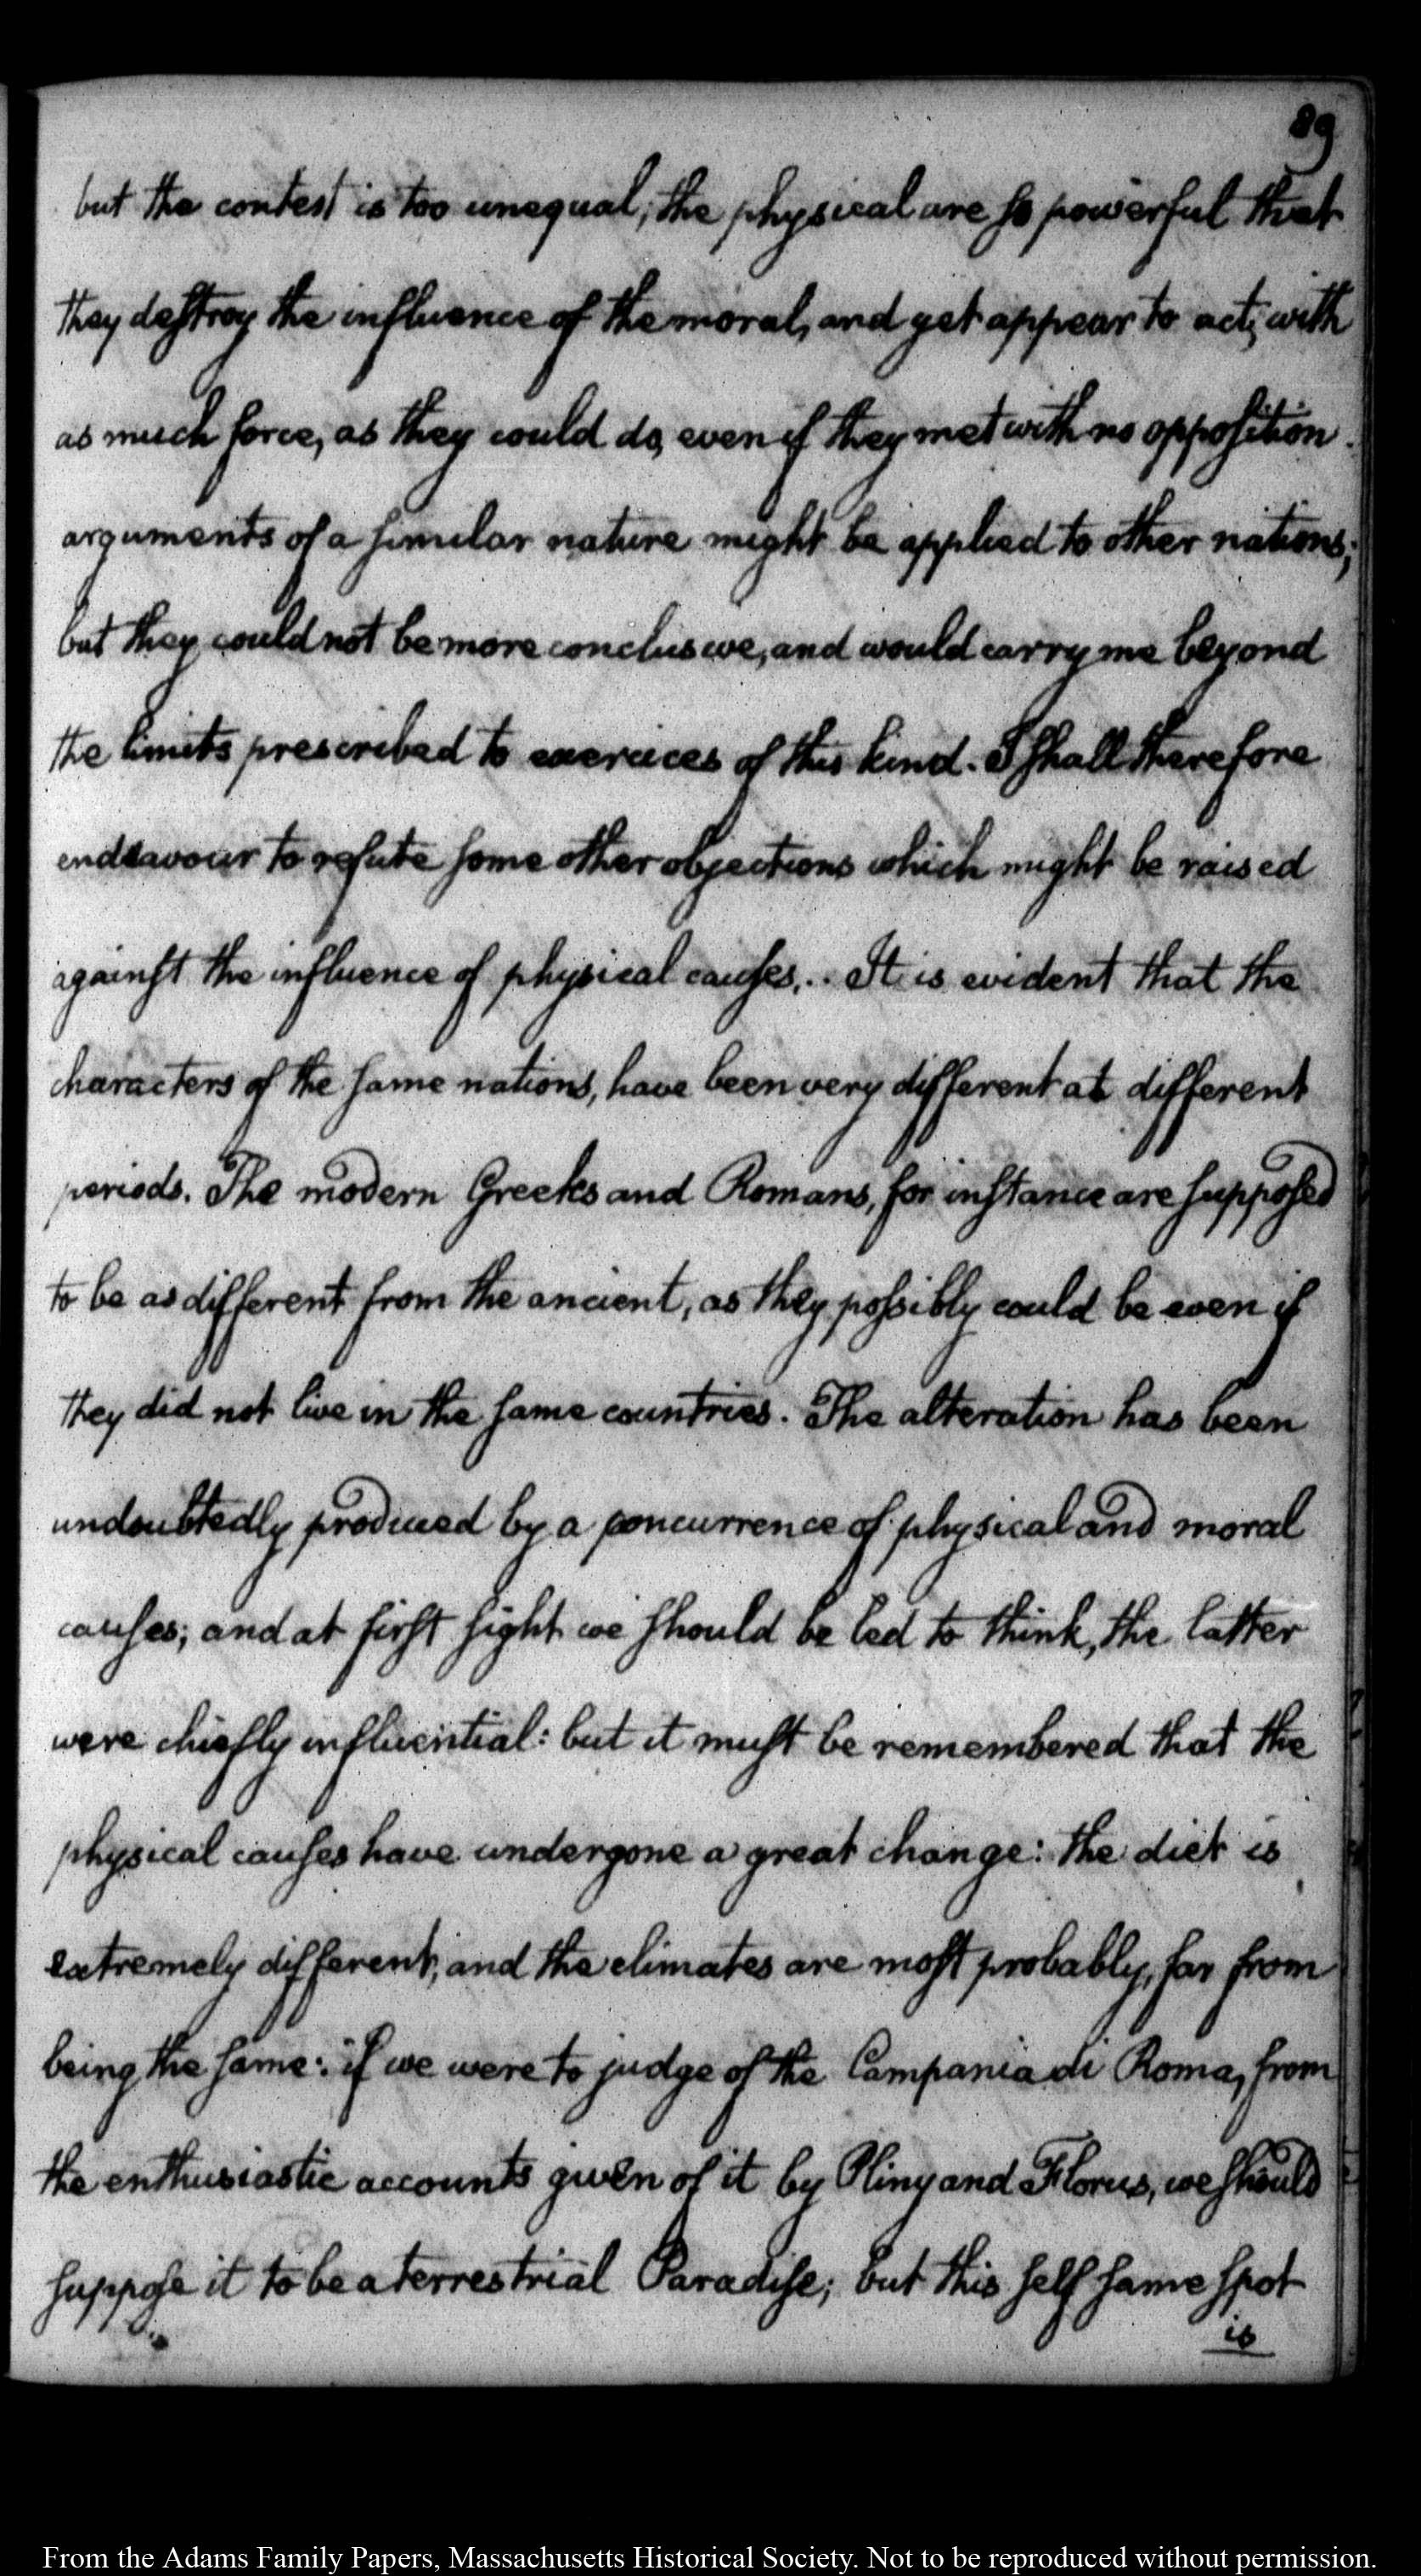 89
but the contest is too unequal; the physical are so powerful that
they destroy the influence of the moral, and yet appear to act, with
as much force, as they could do, even if they met with no opposition.
arguments of a similar nature might be applied to other nations;
but they could not be more conclusive, and would carry me beyond
the limits prescribed to exercices of this kind. I shall therefore
endeavour to refute some other objections which might be raised
against the influence of physical causes... It is evident that the
characters of the same nations, have been very different at different
periods. The modern Greeks and Romans, for instance are supposed
to be as different from the ancient, as they possibly could be even if
they did not live in the same countries. The alteration has been
undoubtedly produced by a concurrence of physical and moral
causes; and at first sight we should be led to think, the latter
were chiefly influential: but it must be remembered that the
physical causes have undergone a great change: the diet is
extremely different, and the climates are most probably, far from
being the same: if we were to judge of the Campania di Roma, from
the enthusiastic accounts given of it by Pliny and Florus, we should
suppose it to be a terrestrial Paradise; but this self same spot
is
From the Adams Family Papers, Massachusetts Historical Society. Not to be reproduced without permission.